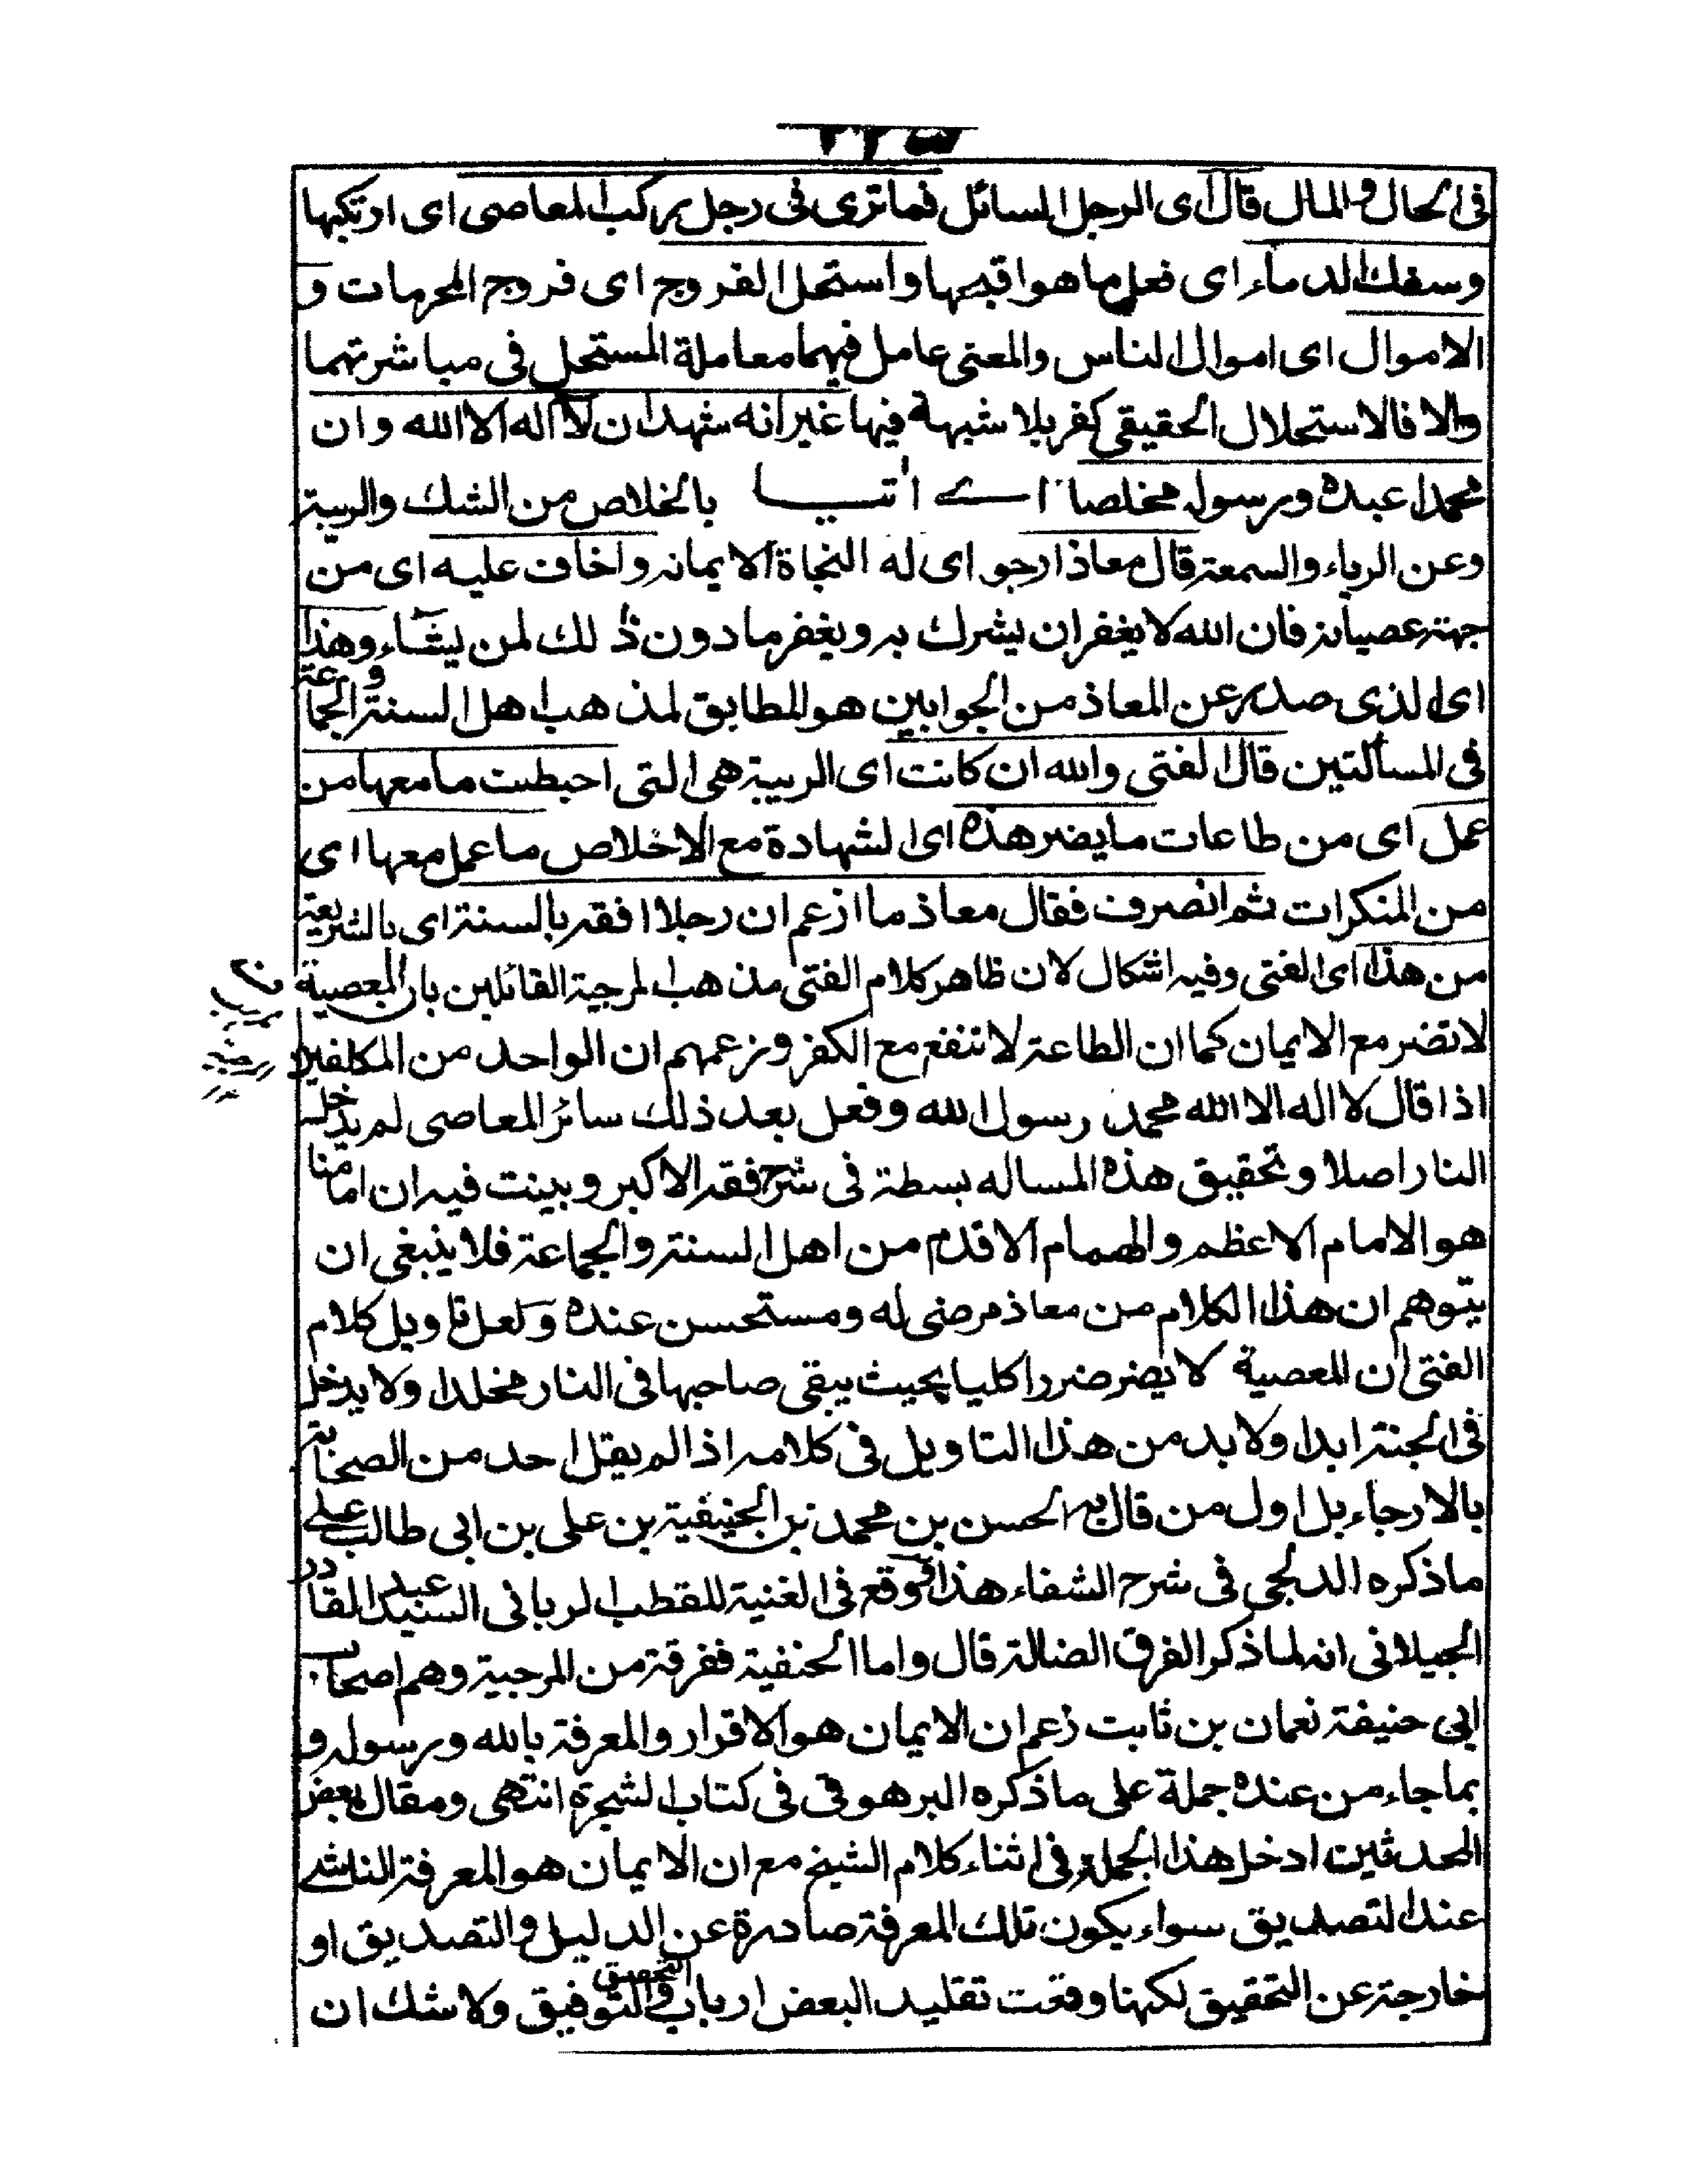 فى الحال والمال قال اى الرجل السائل فماترى فى رجل يركب المعاصى اى ارتكبها
وسفك الدماء اى فعل ما هو اقبحها واستحل الفروج اى فروج المحرمات و
الاموال اى اموال الناس والمعنى عامل فيهما معاملة المستحل فى مباشرتهما
والا فالاستحلال الحقيقى كفر بلا شبهة فيها غير انه شهد ان لا اله الا الله وان
محمدا عبده ورسوله مخلصا اے اتيا بالخلاص من الشك والريبة
وعن الرياء والسمعة قال معاذ ارجو اى له النجاة لايمانه واخاف عليه اى من
جهة عصيانه فان الله لا يغفر ان يشرك به ويغفر مادون ذلك لمن يشاء وهذا
اى الذى صدر عن المعاذ من الجوابين هو المطابق لمذهب اهل السنة والجماعة
فى المسألتين قال الفتى والله ان كانت اى الريبة هى التى احبطت ما معها من
عمل اى من طاعات ما يضر هذه اى الشهادة مع الاخلاص ما عمل معها اى
من المنكرات ثم انصرف فقال معاذ ما ازعم ان رجلا افقه بالسنة اى بالشريعة
من هذا اى الفتى وفيه اشكال لان ظاهر كلام الفتى مذهب المرجية القائلين بان المعصية
لا تضر مع الايمان كما ان الطاعة لا تنفع مع الكفر وزعمهم ان الواحد من المكلفين
اذا قال لا اله الا الله محمد رسول الله وفعل بعد ذلك سائر المعاصى لم يدخل
النار اصلا وتحقيق هذه المساله بسطة فى شرح فقه الاكبر وبينت فيه ان امامنا
هو الامام الاعظم والهمام الاقدم من اهل السنة والجماعة فلا ينبغى ان
يتوهم ان هذا الكلام من معاذ مرضى له ومستحسن عنده ولعل تاويل كلام
الفتى ان المعصية لا يضر ضررا كليا بحيث يبقى صاحبها فى النار مخلدا ولا يدخل
فى الجنة ابدا ولا بد من هذا التاويل فى كلامه اذا لم يقل احد من الصحابة
بالارجاء بل اول من قال به الحسن بن محمد بن الحنيفية بن على بن ابى طالب على
ما ذكره الدلجى فى شرح الشفاء هذا ووقع فى الغنية للقطب الربانى السيد عبد القادر
الجيلانى انه لما ذكر الفرق الضالة قال واما الحنفية ففرقة من المرجية وهم اصحاب
ابى حنيفة نعمان بن ثابت زعم ان الايمان هو الاقرار والمعرفة بالله ورسوله و
بما جاء من عنده جملة على ما ذكره البرهوقى فى كتاب الشجرة انتهى ومقال بعض
المحدثين ادخل هذا الجملة فى اثناء كلام الشيخ مع ان الايمان هو المعرفة الناشے
عند التصديق سواء يكون تلك المعرفة صادرة عن الدليل والتصديق او
خارجة عن التحقيق لكهنا وقعت تقليد البعض ارباب التحقيق والتوفيق ولا شك ان